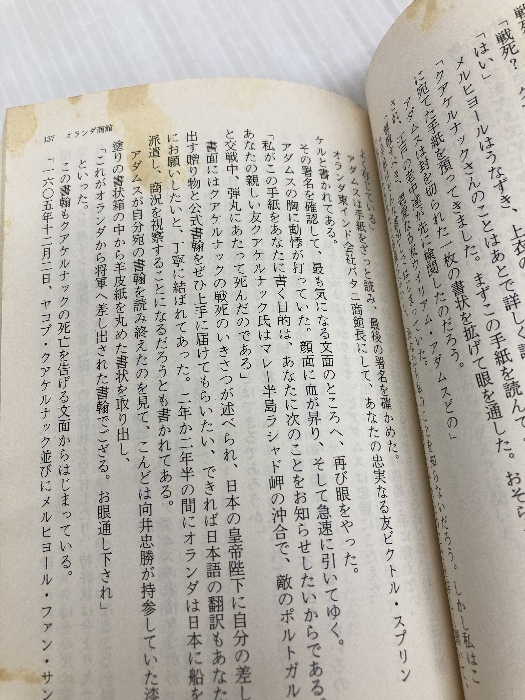 戦死
「戦死？
「はい」
メルヒョールはうなずき、上衣の
「クアケルナックさんのことはあとで詳し
に宛てた手紙を預ってきました。まずこの手紙を読んで
アダムスは封を切られた一枚の書状を拡げて眼を通した。おそら
ウイリアム・アダムスどの」
しかし私はこ
137 オランダ商館
アダムスは手紙をざっと読み、最後の署名を確かめた。
オランダ東インド会社パタニ商館長にして、あなたの忠実なる友ビクトル・スプリン
ケルと書かれてある。
その署名を確認して、最も気になる文面のところへ、再び眼をやった。
アダムスの胸に動悸が打っていた。顔面に血が昇り、そして急速に引いてゆく。
「私がこの手紙をあなたに書く目的は、あなたに次のことをお知らせしたいからである
あなたの親しい友クアケルナック氏はマレー半島ラシャド岬の沖合で、敵のポルトガル
と交戦中、弾丸にあたって死んだのである」
書面にはクアケルナックの戦死のいきさつが述べられ、日本の皇帝陛下に自分の差し
出す贈り物と公式書翰をぜひ上手に届けてもらいたい、できれば日本語の翻訳もあなた
にお願いしたいと、丁寧に結ばれてあった。二年か二年半の間にオランダは日本に船を
派遣し、商況を視察することになるだろうとも書かれてある。
アダムスが自分宛の書翰を読み終えたのを見て、こんどは向井忠勝が持参していた漆
塗りの書状箱の中から羊皮紙を丸めた書状を取り出し、
「これがオランダから将軍へ差し出された書翰でござる。お眼通し下され」
といった。
この書翰もクアケルナックの死亡を告げる文面からはじまっている。
「一六〇五年十二月二日、ヤコブ・クアケルナック並びにメルヒョール・ファン・サン